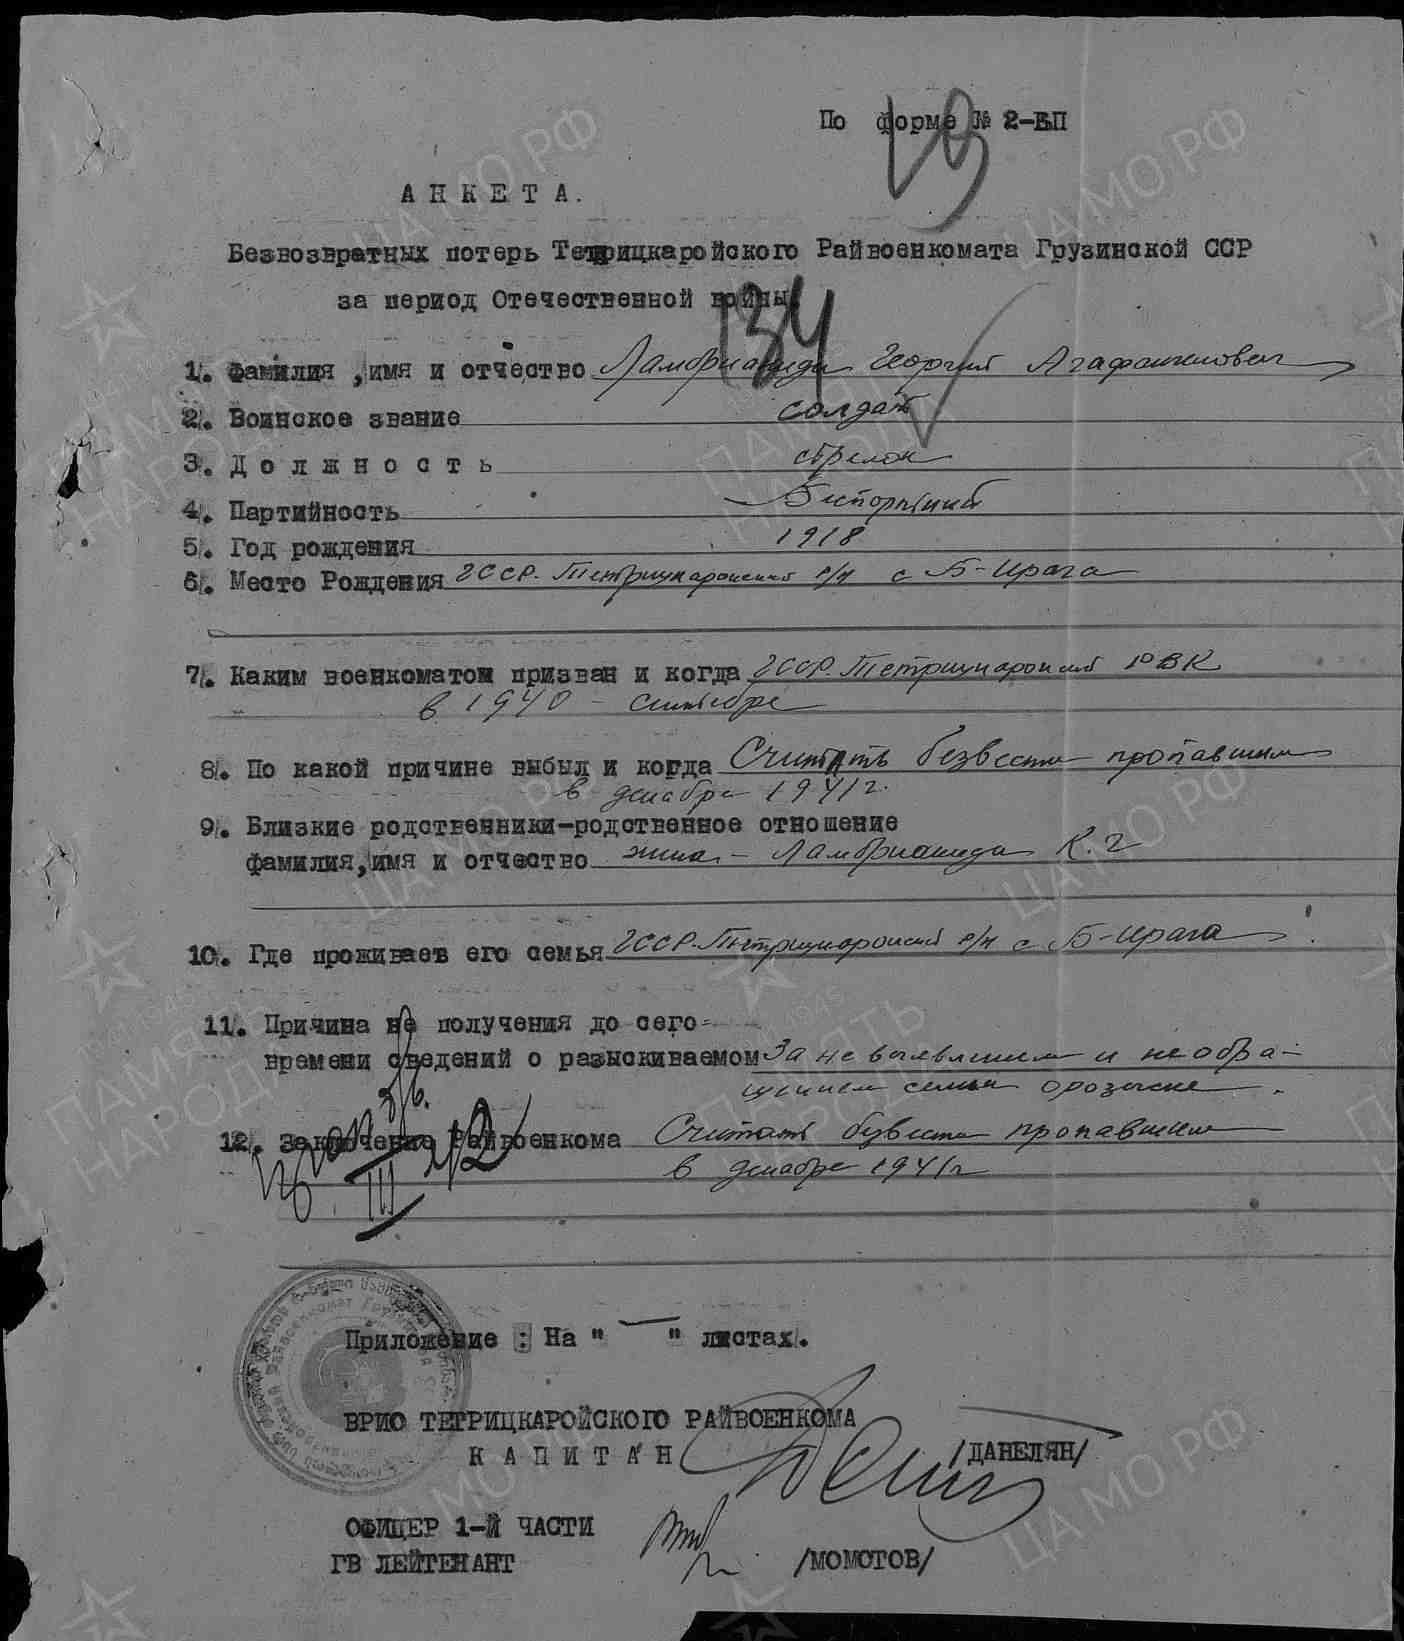 По форме № 2-БП
19
АНКЕТА.
Безвозвратных потерь Тетрицкаройского Райвоенкомата Грузинской ССР
за период Отечественной войны
134
1. Фамилия, имя и отчество Ламбрианиди Георгий Агафангелович
2. Воинское звание солдат
3. Должность стрелок
4. Партийность Беспартийный
5. Год рождения 1918
6. Место Рождения ГССР. Тетрицкаройский р/н с Б-Ирага
7. Каким военкоматом призван и когда ГССР. Тетрицкаройский РВК
в 1940 - сентябре
8. По какой причине выбыл и когда Считать безвести пропавшим
в декабре 1941 г.
9. Близкие родственники-родственное отношение
фамилия, имя и отчество жена - Ламбрианиди К. Г
10. Где проживает его семья ГССР. Тетрицкаройский р/н с Б-Ирага
11. Причина не получения до сего=
времени сведений о разыскиваемом За не выявлением и не обра-
щением семьи о розыске.
12. Заключение Райвоенкома Считать безвести пропавшим
в декабре 1941 г
Приложение : На " — " листах.
ВРИО ТЕТРИЦКАРОЙСКОГО РАЙВОЕНКОМА
КАПИТАН /ДАНЕЛЯН/
ОФИЦЕР 1-Й ЧАСТИ
ГВ ЛЕЙТЕНАНТ /МОМОТОВ/
ЦА МО РФ
ПАМЯТЬ НАРОДА